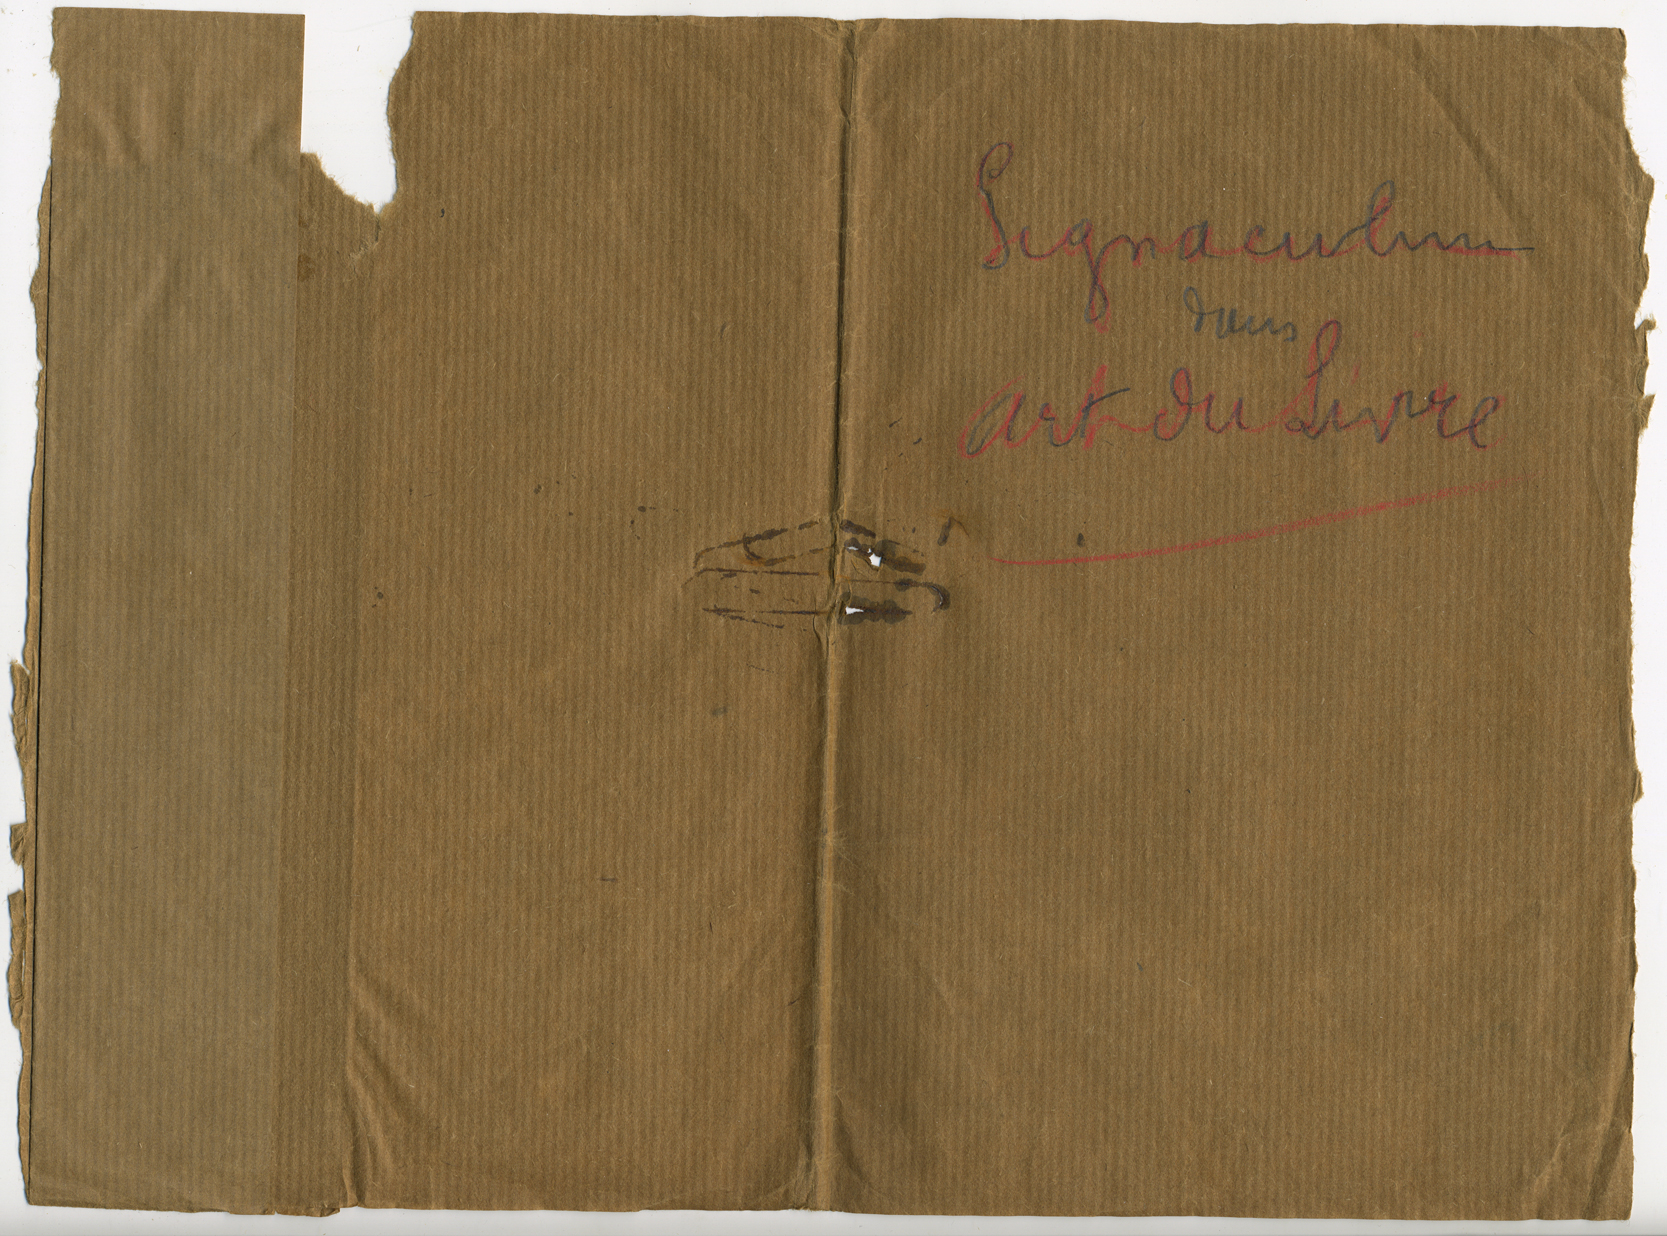 Signaculum
dans
Art du Livre